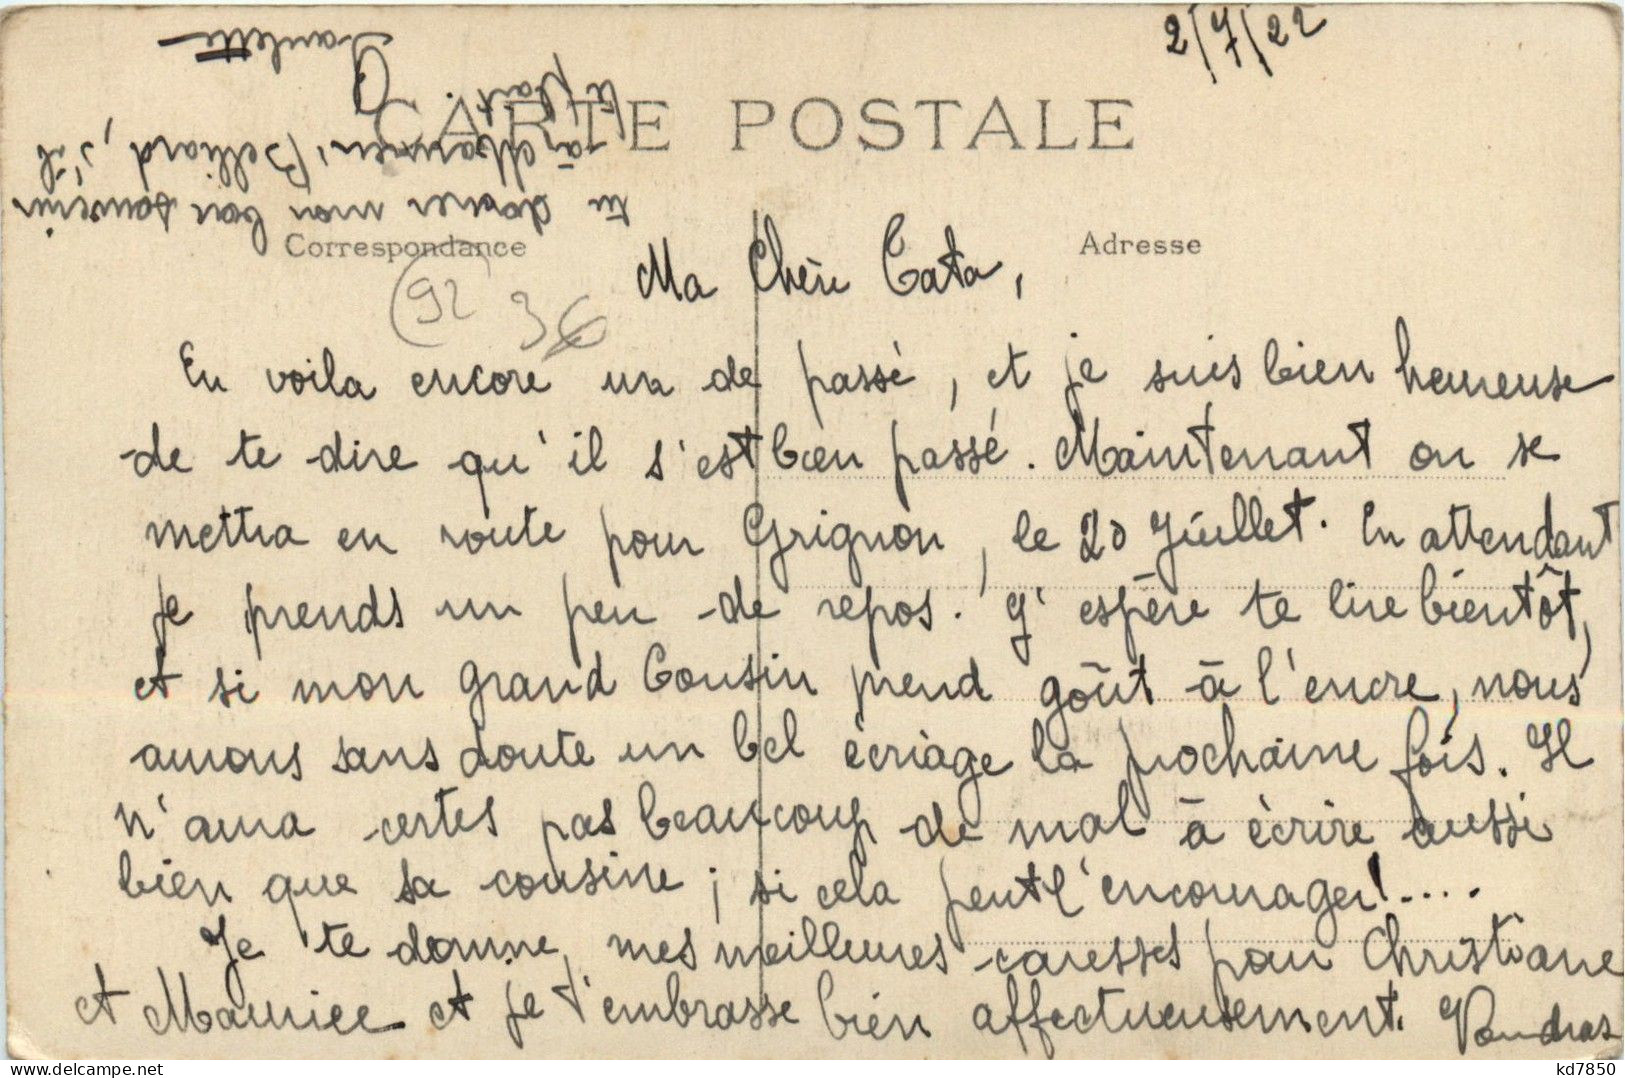 2/7/22
CARTE POSTALE
Correspondance
Adresse
(92 3€
Ma Chère Cata,
En voila encore un de passé, et je suis bien heureuse
de te dire qu'il s'est bien passé. Maintenant on se
mettra en route pour Grignon, le 20 Juillet. En attendant
je prends un peu de repos. J'espère te lire bientôt,
et si mon grand Cousin prend goût à l'encre, nous
aurons sans doute un bel écriage la prochaine fois. Il
n'aura certes pas beaucoup de mal à écrire aussi
bien que sa cousine ; si cela peut l'encourager!....
Je te donne mes meilleures caresses pour Christiane
et Maurice et je t'embrasse bien affectueusement. Voudras
tu donner mon bon souvenir
à Maxmen Belliard, s'il
te plait.
Paulette
kd7850